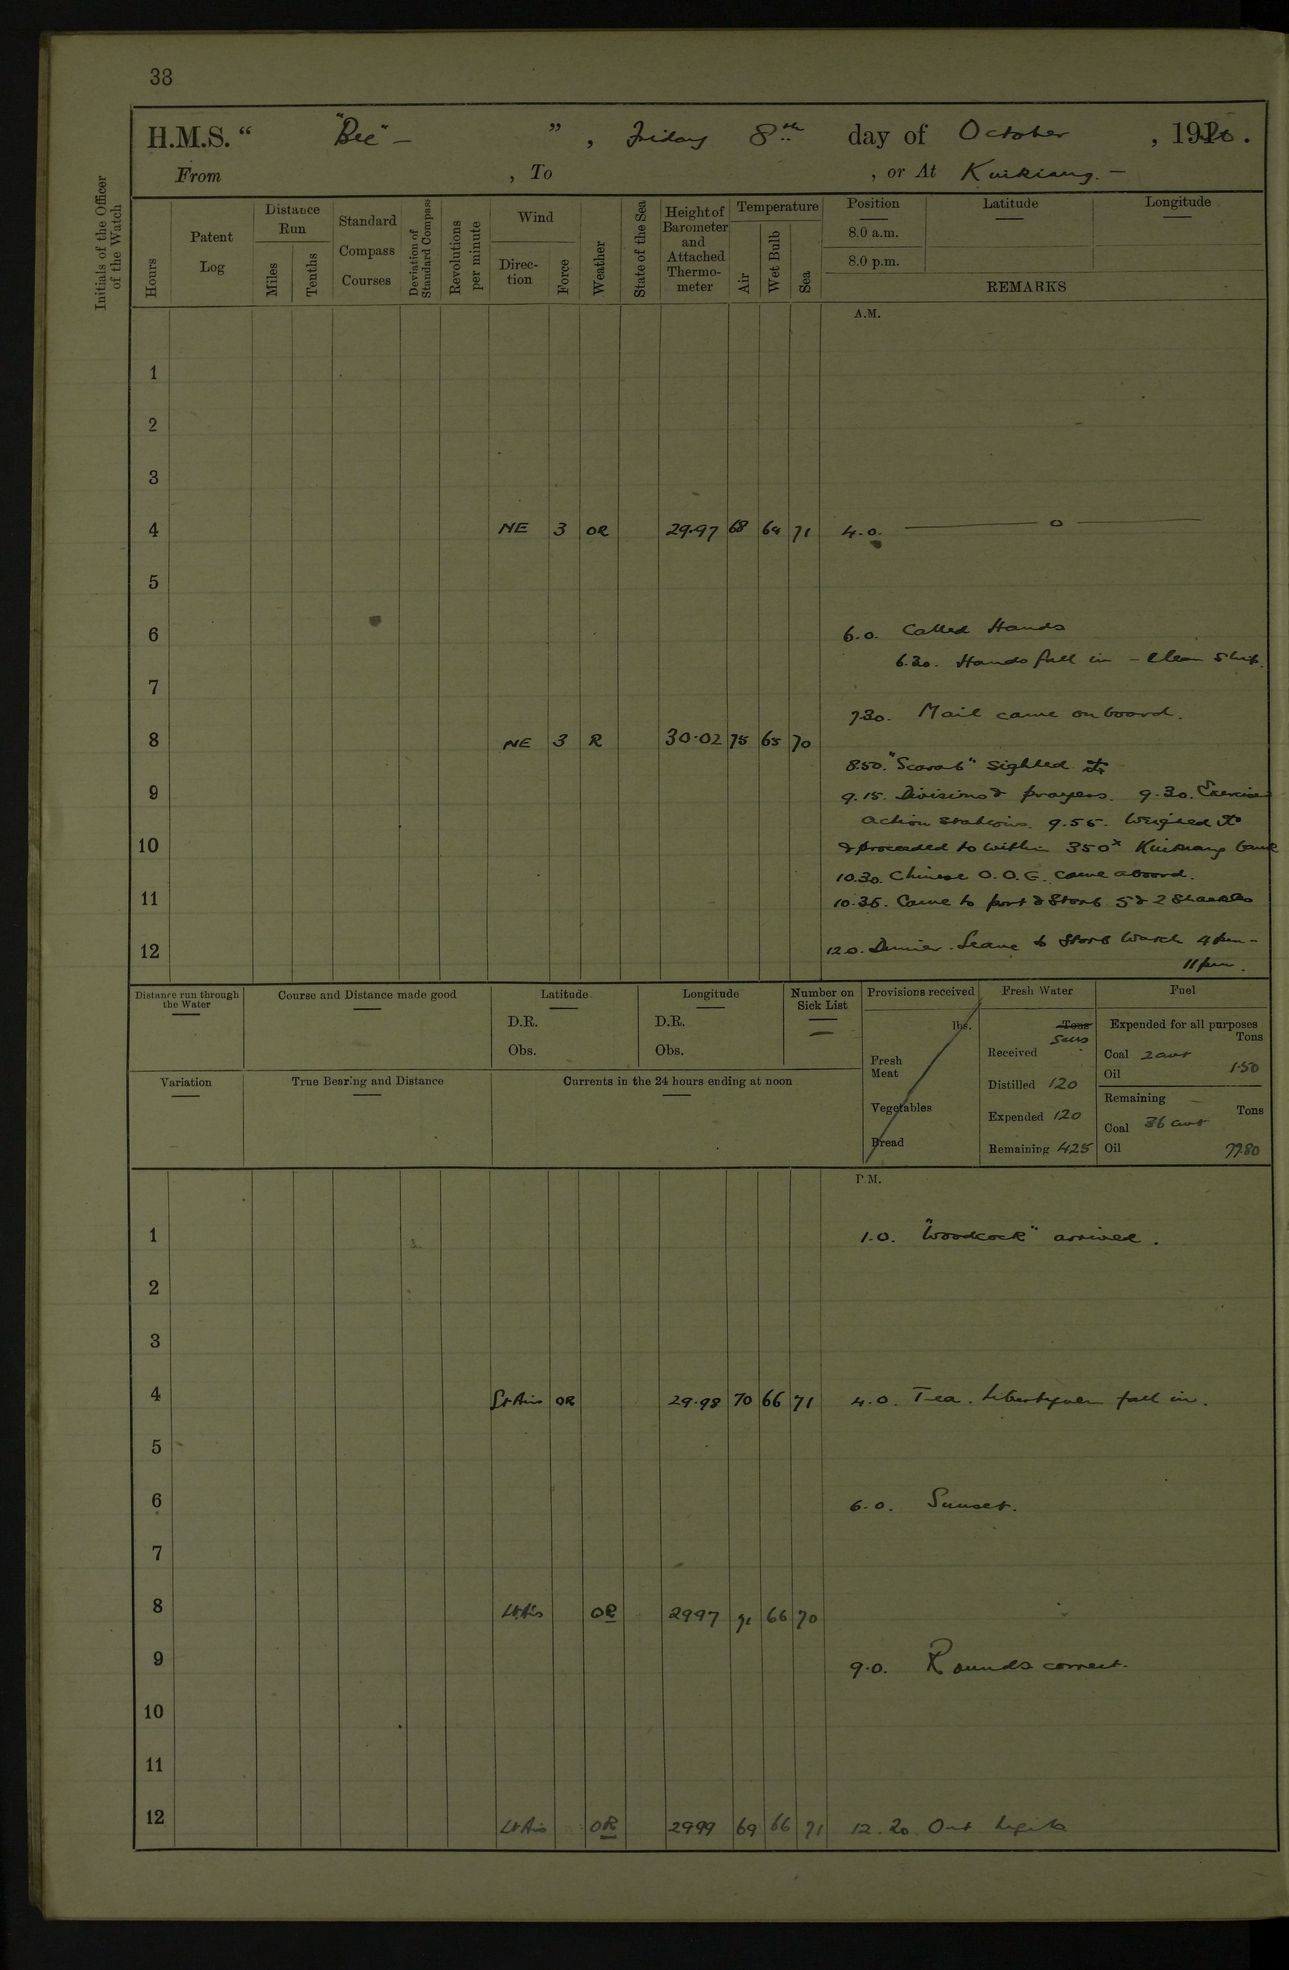 38
H.M.S. “ "Bee" – ” , Friday 8th day of October , 1920.
From , To , or At Kiukiang. –
Initials of the Officer of the Watch
Hours
Patent Log
Distance Run
Miles
Tenths
Standard Compass Courses
Deviation of Standard Compass
Revolutions per minute
Wind
Direction
Force
Weather
State of the Sea
Height of Barometer and Attached Thermometer
Temperature
Air
Wet Bulb
Sea
Position
8.0 a.m.
8.0 p.m.
Latitude
Longitude
REMARKS
A.M.
1
2
3
4 NE 3 OR 29.97 68 64 71 4.0. ——— o ———
5
6 6.0. Called Hands
6.30. Hands fall in – Clean Ship.
7
7.30. Mail came on board.
8 NE 3 R 30.02 75 65 70
8.50. "Scarab" sighted
9 9.15. Divisions & prayers. 9.30. Exercise
action stations. 9.55. Weighed
10 & proceeded to within 350x Kiukiang
10.30. Chinese O.O.G. came aboard.
11 10.35. Came to port & Starb 5 & 2 Shackles
12 12.0. Dinner. Leave to Starb Watch 4 pm –
11 pm.
Distance run through the Water
Course and Distance made good
Latitude
D.R.
Obs.
Longitude
D.R.
Obs.
Number on Sick List
—
Variation
True Bearing and Distance
Currents in the 24 hours ending at noon
Provisions received
lbs.
Fresh Meat
Vegetables
Bread
Fresh Water
Tons
Received
Distilled 120
Expended 120
Remaining 425
Fuel
Expended for all purposes
Tons
Coal 2 cwt
Oil 1.50
Remaining
Tons
Coal 36 cwt
Oil 77.80
P.M.
1 1.0. "Woodcock" arrived.
2
3
4 Lt Airs OR 29.98 70 66 71 4.0. Tea. Libertymen fall in.
5
6 6.0. Sunset.
7
8 Lt Airs OR 2997 71 66 70
9 9.0. Rounds correct.
10
11
12 Lt Airs OR 2999 69 66 71 12.20 Out Lights